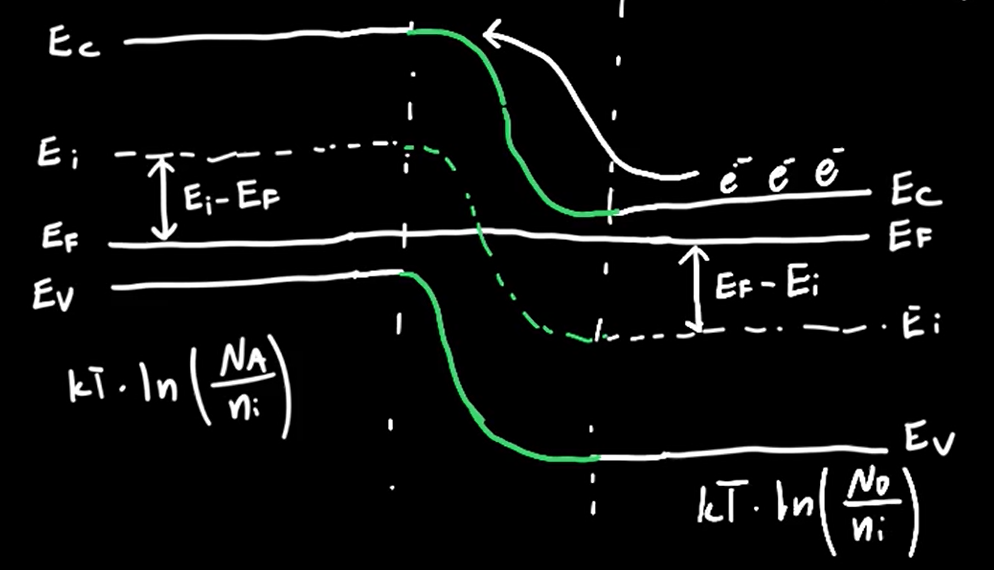 Ec
Ei
Ei-EF
EF
Ev
kT · ln(NA/ni)
e⁻ e⁻ e⁻
Ec
EF
EF-Ei
Ei
Ev
kT · ln(ND/ni)